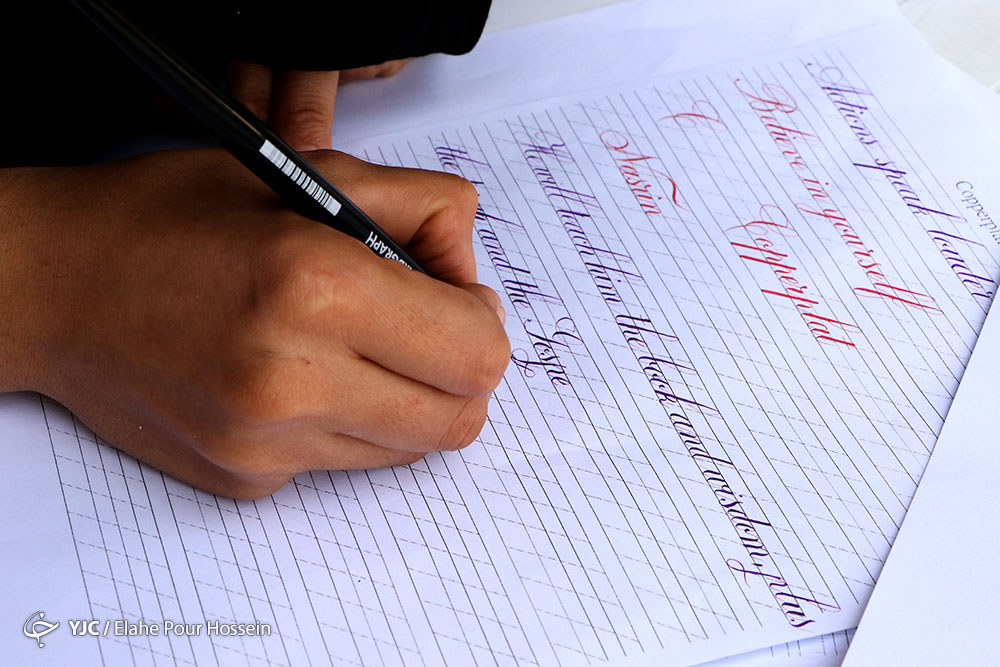 Copperpla
Actions speak loude
Believe in yourself
Copperplat
C
Nasrin
He teach him the book and wisdom, plus
the and the Gospe
YJC / Elahe Pour Hossein